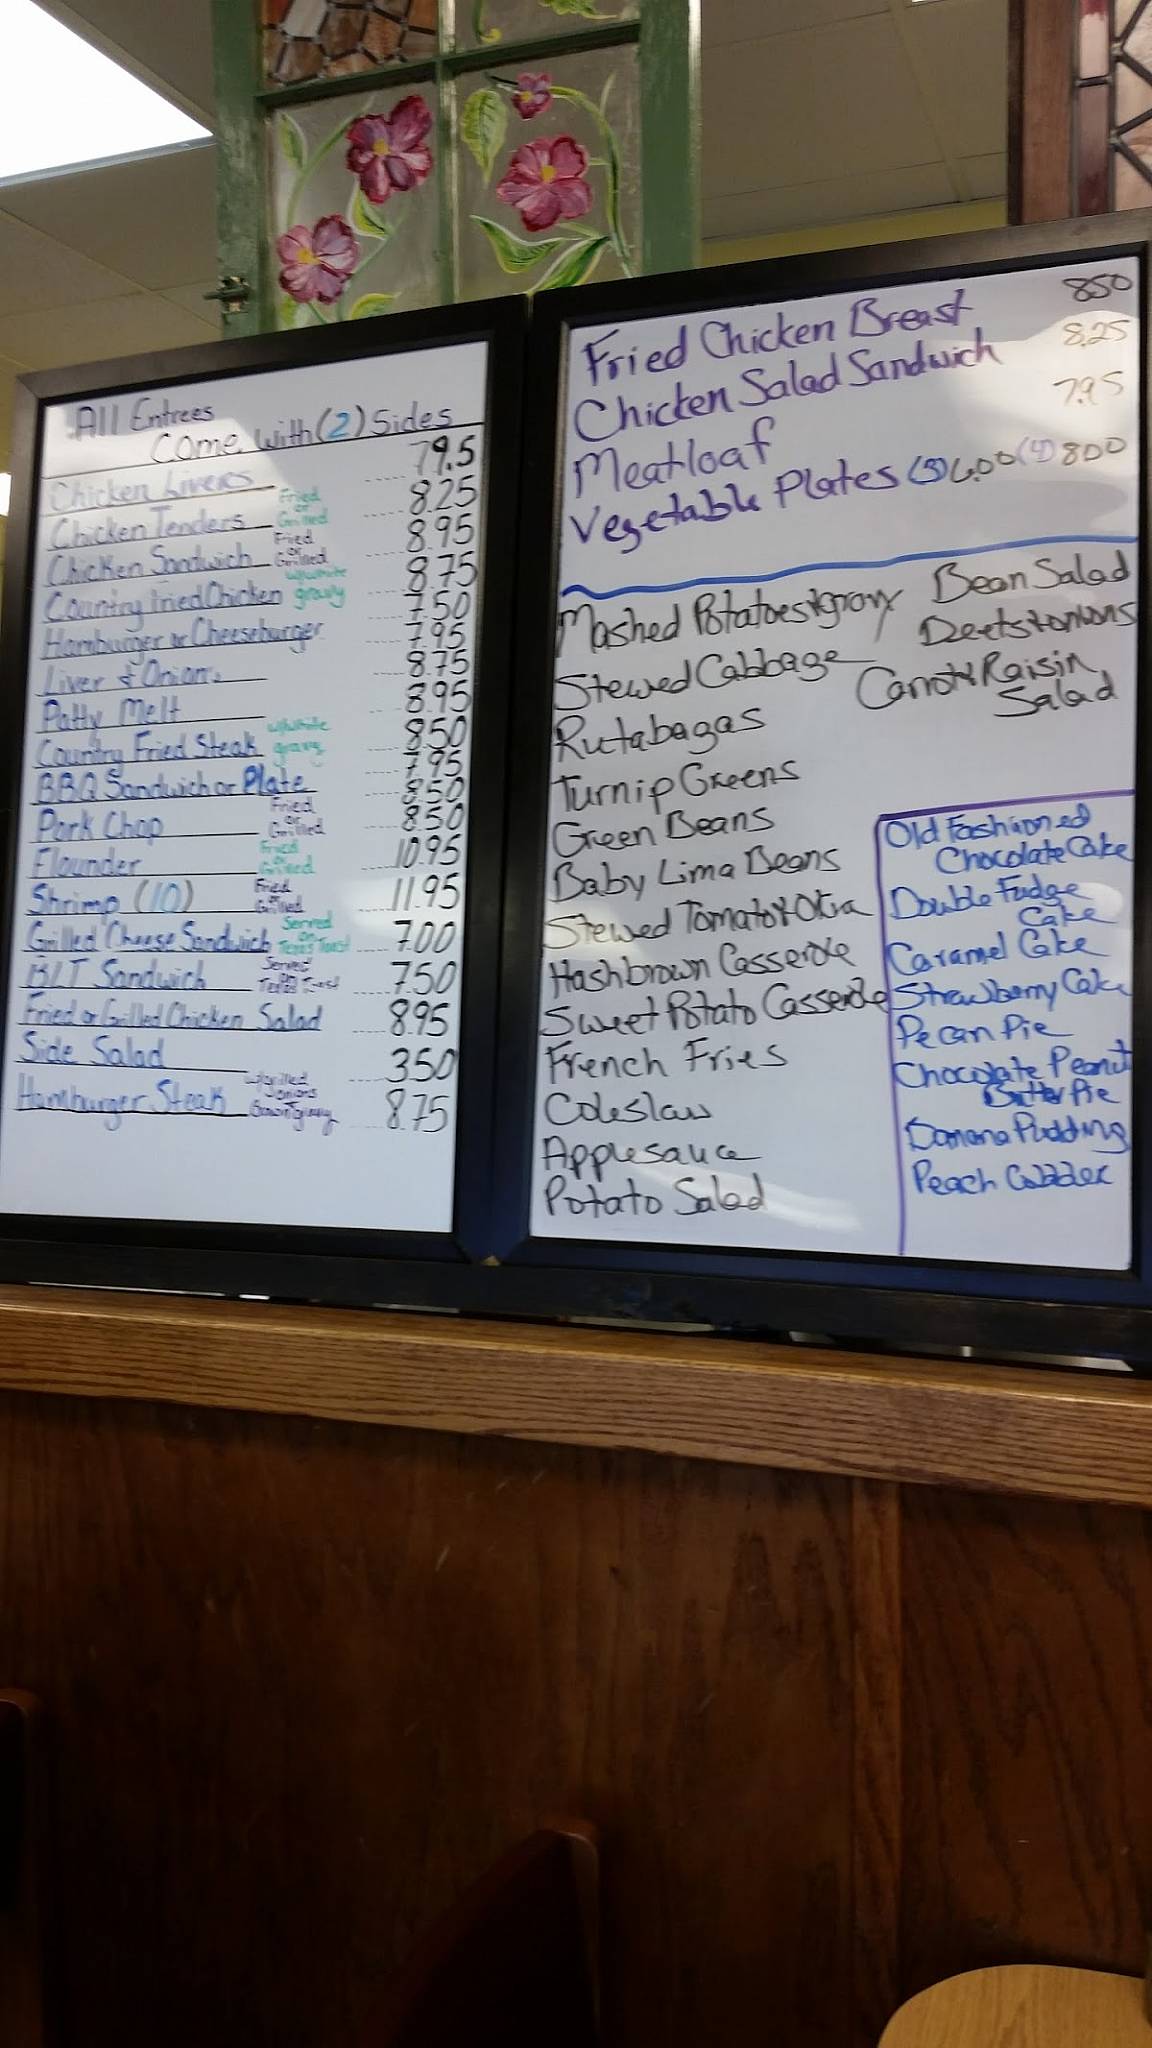 All Entrees
Come with (2) Sides
Chicken Livers 79.5
Chicken Tenders Fried or Grilled 8.25
Chicken Sandwich Fried or Grilled 8.95
Country Fried Chicken w/white gravy 8.75
Hamburger or Cheeseburger 7.50
Liver & Onions 7.95
Patty Melt 8.75
Country Fried Steak w/white gravy 8.95
BBQ Sandwich or Plate 850 7.95
Pork Chop Fried or Grilled 850
Flounder Fried or Grilled 850 10.95
Shrimp (10) Fried or Grilled 11.95
Grilled Cheese Sandwich Served on Texas Toast 7.00
BLT Sandwich Served on Texas Toast 7.50
Fried or Grilled Chicken Salad 8.95
Side Salad 350
Hamburger Steak w/grilled onions Brown gravy 8.75
Fried Chicken Breast 850
Chicken Salad Sandwich 8.25
Meatloaf 7.95
Vegetable Plates (3) 6.00 (4) 800
Mashed Potatoes & gravy
Stewed Cabbage
Rutabagas
Turnip Greens
Green Beans
Baby Lima Beans
Stewed Tomato & Okra
Hashbrown Casserole
Sweet Potato Casserole
French Fries
Coleslaw
Applesauce
Potato Salad
Bean Salad
Beets & onions
Carrot & Raisin
Salad
Old Fashioned
Chocolate Cake
Double Fudge
Cake
Caramel Cake
Strawberry Cake
Pecan Pie
Chocolate Peanut
Butter Pie
Banana Pudding
Peach Cobbler